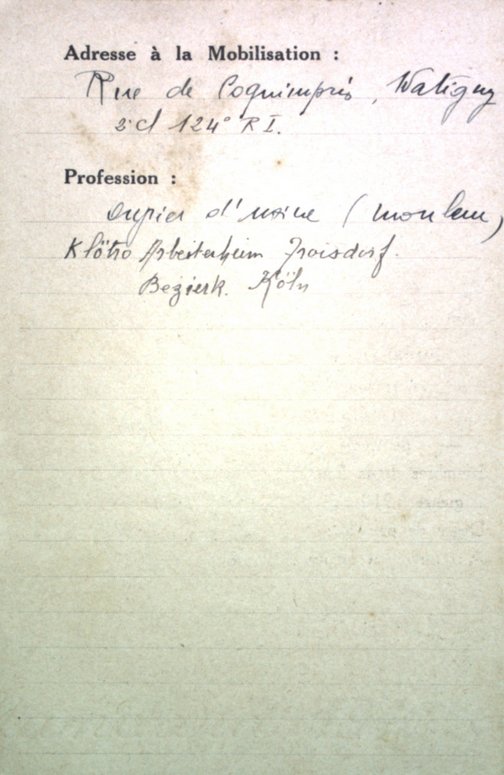 Adresse à la Mobilisation :
Rue de Coquimpris, Watigny
s.d 124° R I.
Profession :
ouvrier d'usine (mouleur)
Klöckno Arbeiterheim Troisdorf.
Bezierk. Köln